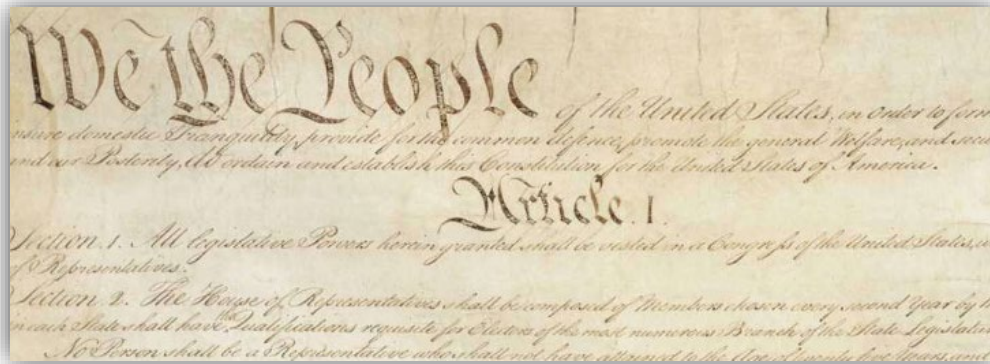 We the People of the United States, in Order to form
nsure domestic Tranquility, provide for the common defence, promote the general Welfare, and secu
and our Posterity, do ordain and establish this Constitution for the United States of America.
Article. I.
Section. 1. All legislative Powers herein granted shall be vested in a Congress of the United States, w
of Representatives.
Section. 2. The House of Representatives shall be composed of Members chosen every second Year by t
in each State shall have the Qualifications requisite for Electors of the most numerous Branch of the State Legislatu
No Person shall be a Representative who shall not have attained to the Age of twenty five Years, and